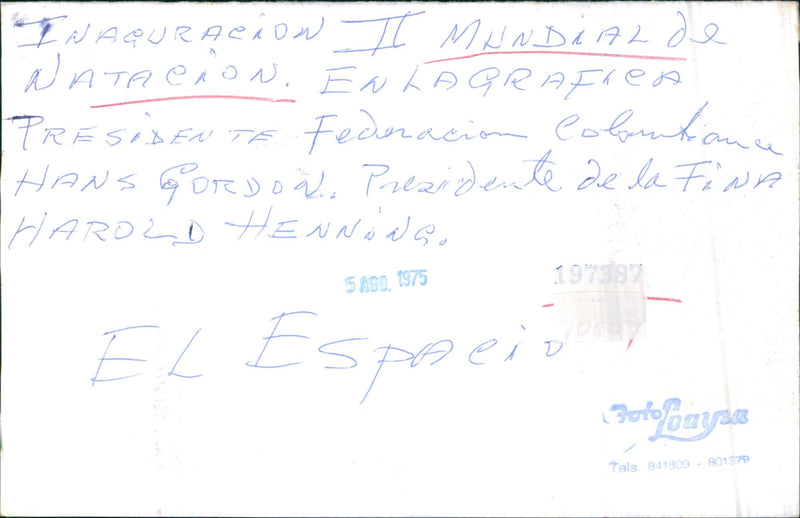 INAGURACION II MUNDIAL de
NATACION. EN LA GRAFICA
PRESIDENTE Federacion Colombiana
HANS GORDON. Presidente de la FINA
HAROLD HENNING.
5 AGO. 1975
197387
EL ESPACIO
Foto Loayza
Tels. 841809 - 601379